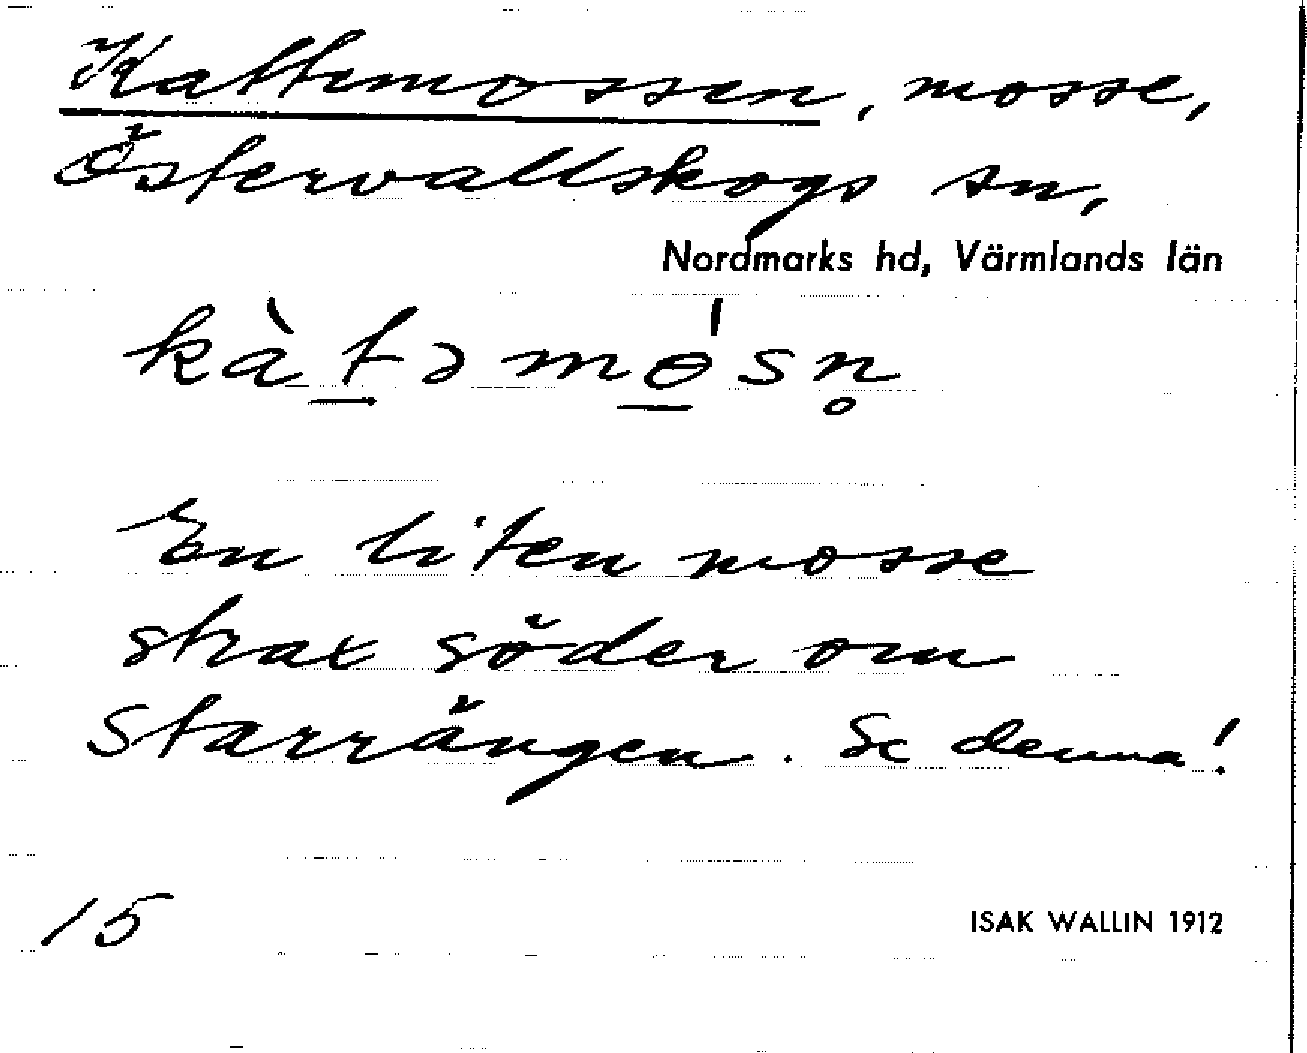 Kattemossen, mosse,
Östervallskogs sn,
Nordmarks hd, Värmlands län
kàt̲əmɵ̲́sn̥
En liten mosse
strax söder om
Starrängen. Se denna!
15
ISAK WALLIN 1912